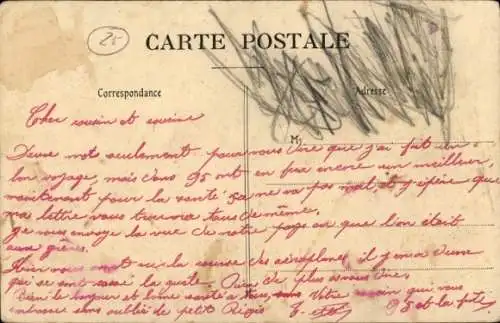 25
CARTE POSTALE
Correspondance
Adresse
M
Cher cousin et cousine
Deux mot seulement pour vous dire que j'ai fait un
bon voyage, mais dans 95 ont en peu encore un meilleur
maintenant pour la santé sa me va pas mal, et j'éspère que
ma lettre vous trouvera tous de même.
Je vous envoye la vue de notre pays en que l'on était
aux
Hier nous ont vu la course des aéroplanes, il y en a d'une
que se sont cassé la Rien de plus a vous dire
bien le bonjour et bonne santé a tous, Votre cousin qui vous
embrasse sans oublié de petit Régis 95 et la fête